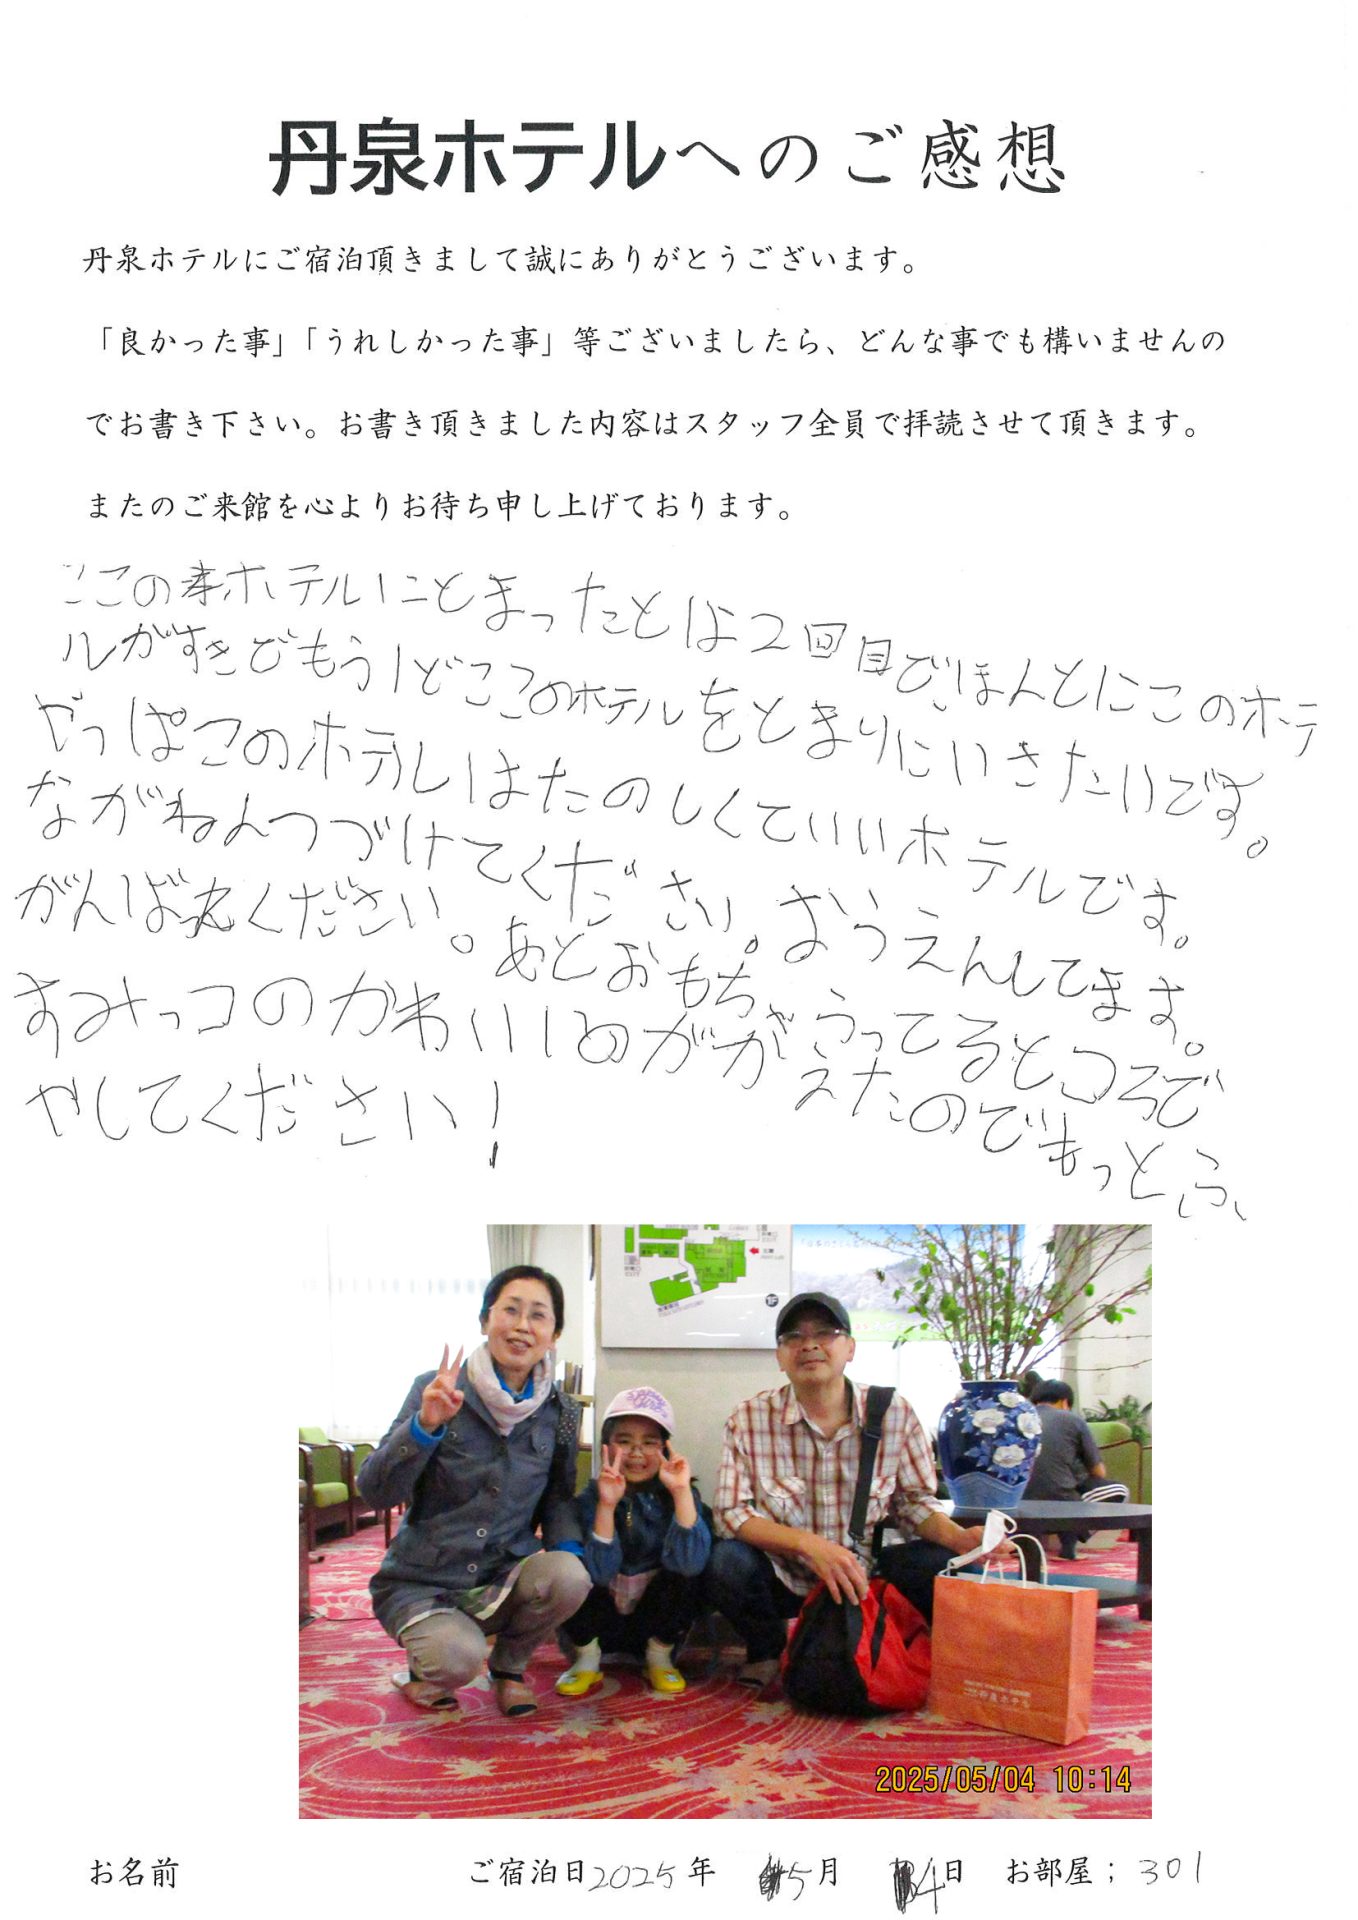 丹泉ホテルへのご感想
丹泉ホテルにご宿泊頂きまして誠にありがとうございます。
「良かった事」「うれしかった事」等ございましたら、どんな事でも構いませんの
でお書き下さい。お書き頂きました内容はスタッフ全員で拝読させて頂きます。
またのご来館を心よりお待ち申し上げております。
ここのホテルにとまったとは2回目で、ほんとにこのホテ
ルがすきでもう1どここのホテルをとまりにいきたいです。
やっぱこのホテルはたのしくていいホテルです。
ながねんつづけてください。おうえんしてます。
がんばってください。あとおもちゃうってるところで
すみっコのかわいいのががえたのでもっとふ、
やしてください!
1F
2025/05/04 10:14
お名前 ご宿泊日2025年 5月 4日 お部屋；301